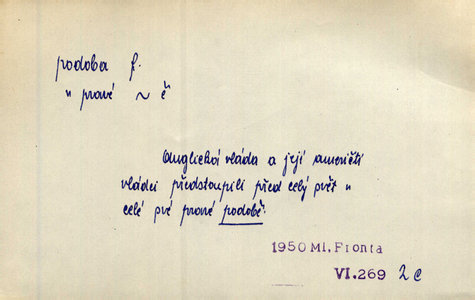 podoba f.
v pravé ~ ě
Anglická vláda a její američtí
vládci předstoupili před celý svět v
celé své pravé podobě.
1950 Ml. Fronta
VI.269 2c